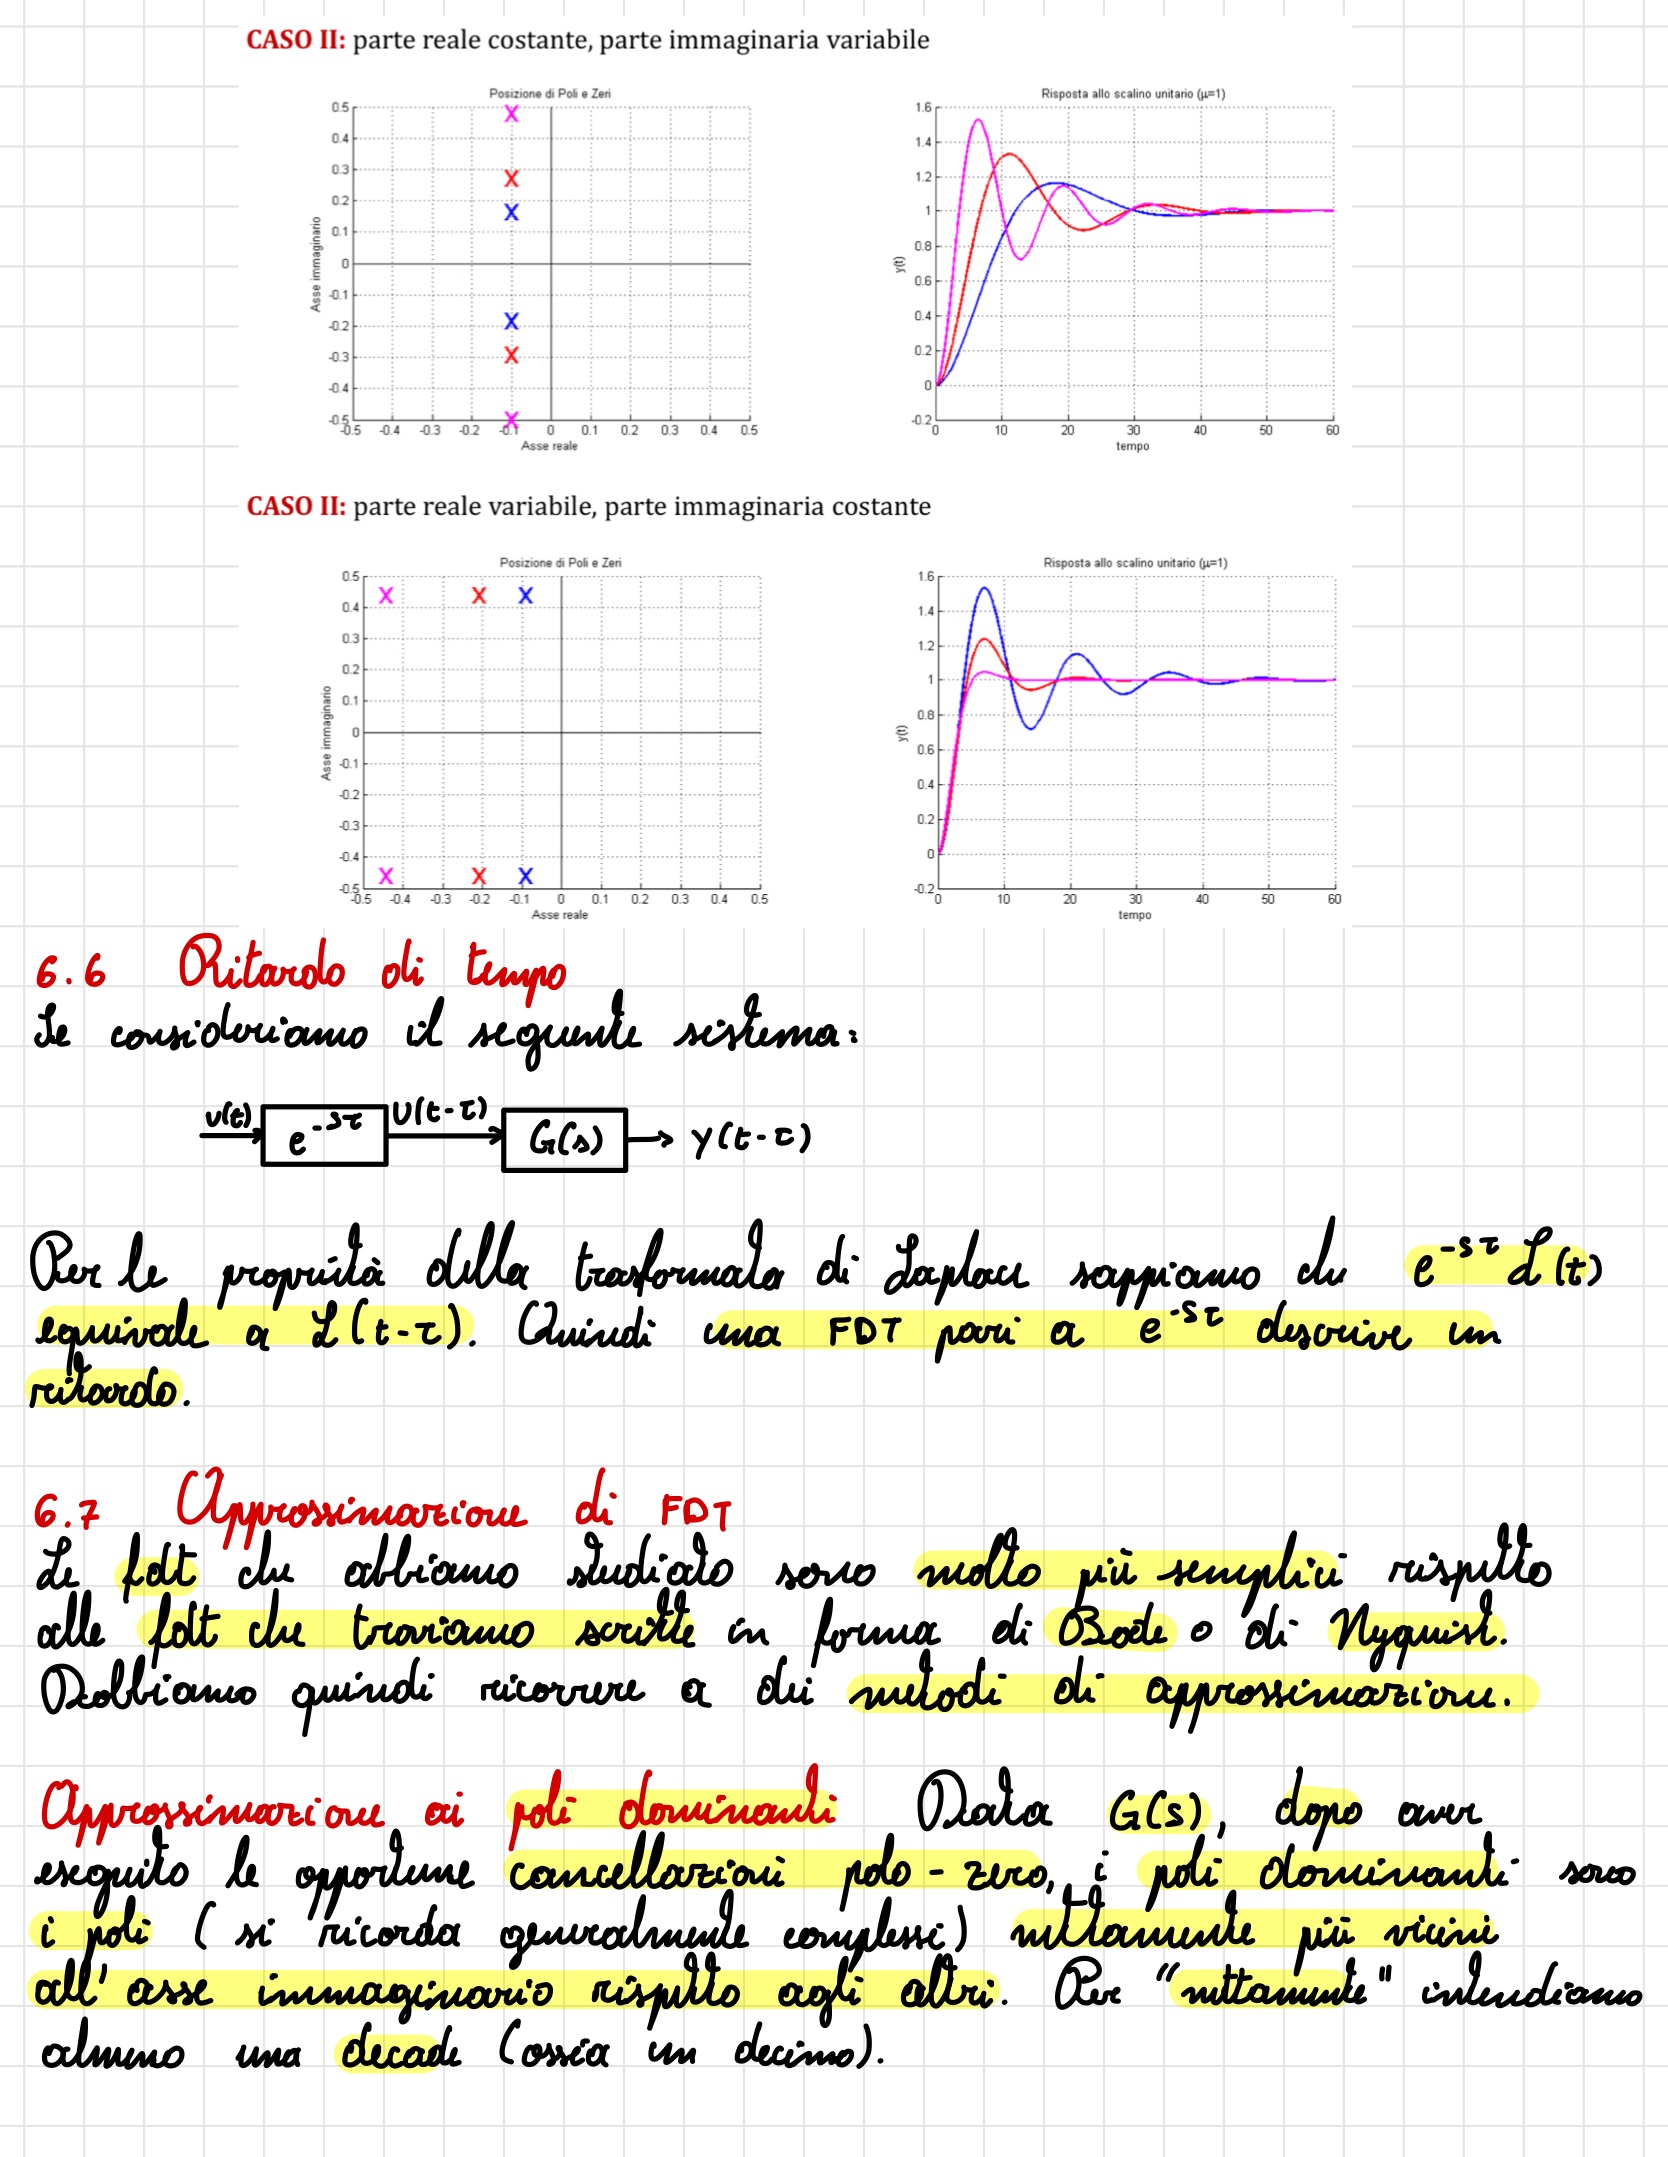 CASO II: parte reale costante, parte immaginaria variabile
Posizione di Poli e Zeri
0.5
0.4
0.3
0.2
0.1
0
-0.1
-0.2
-0.3
-0.4
-0.5
Asse immaginario
-0.5 -0.4 -0.3 -0.2 -0.1 0 0.1 0.2 0.3 0.4 0.5
Asse reale
Risposta allo scalino unitario (μ=1)
1.6
1.4
1.2
1
0.8
0.6
0.4
0.2
0
-0.2
y(t)
0 10 20 30 40 50 60
tempo
CASO II: parte reale variabile, parte immaginaria costante
Posizione di Poli e Zeri
0.5
0.4
0.3
0.2
0.1
0
-0.1
-0.2
-0.3
-0.4
-0.5
Asse immaginario
-0.5 -0.4 -0.3 -0.2 -0.1 0 0.1 0.2 0.3 0.4 0.5
Asse reale
Risposta allo scalino unitario (μ=1)
1.6
1.4
1.2
1
0.8
0.6
0.4
0.2
0
-0.2
y(t)
0 10 20 30 40 50 60
tempo
6.6 Ritardo di tempo
Se consideriamo il seguente sistema:
u(t) e^-sτ U(t-τ) G(s) y(t-τ)
Per le proprietà della trasformata di Laplace sappiamo che e^-sτ L(t)
equivale a L(t-τ). Quindi una FDT pari a e^-sτ descrive un
ritardo.
6.7 Approssimazione di FDT
Le fdt che abbiamo studiato sono molto più semplici rispetto
alle fdt che troviamo scritte in forma di Bode o di Nyquist.
Dobbiamo quindi ricorrere a dei metodi di approssimazione.
Approssimazione ai poli dominanti Data G(s), dopo aver
eseguito le opportune cancellazioni polo-zero, i poli dominanti sono
i poli (si ricorda generalmente complessi) nettamente più vicini
all'asse immaginario rispetto agli altri. Per "nettamente" intendiamo
almeno una decade (ossia un decimo).